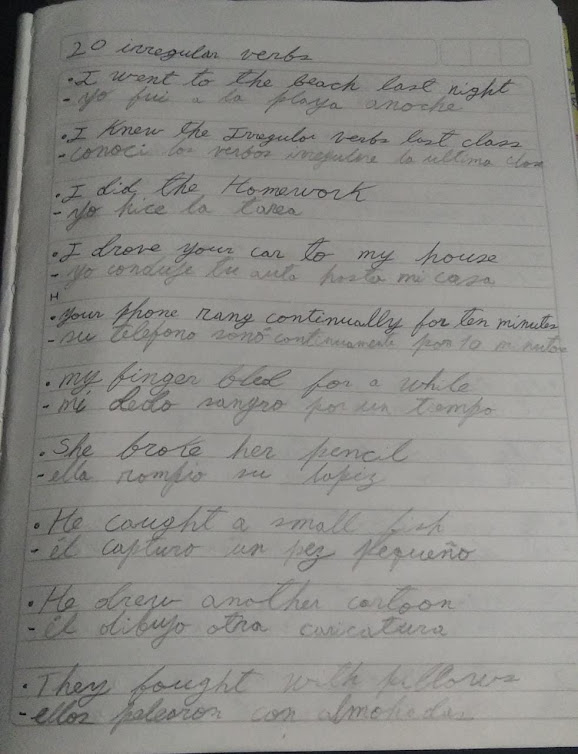 20 irregular verbs
• I went to the beach last night
- yo fui a la playa anoche
• I Knew the Irregular verbs last class
- conoci los verbos irregulare la ultima clase
• I did the Homework
- yo hice la tarea
• I drove your car to my house
- yo conduje tu auto hasta mi casa
H
• your phone rang continually for ten minutes
- su telefono sonó continuamente por 10 minutos
• my finger bled for a while
- mi dedo sangro por un tiempo
• She broke her pencil
- ella rompio su lapiz
• He caught a small fish
- él capturo un pez pequeño
• He drew another cartoon
- él dibujo otra caricatura
• They fought with pillows
- ellos pelearon con almohadas